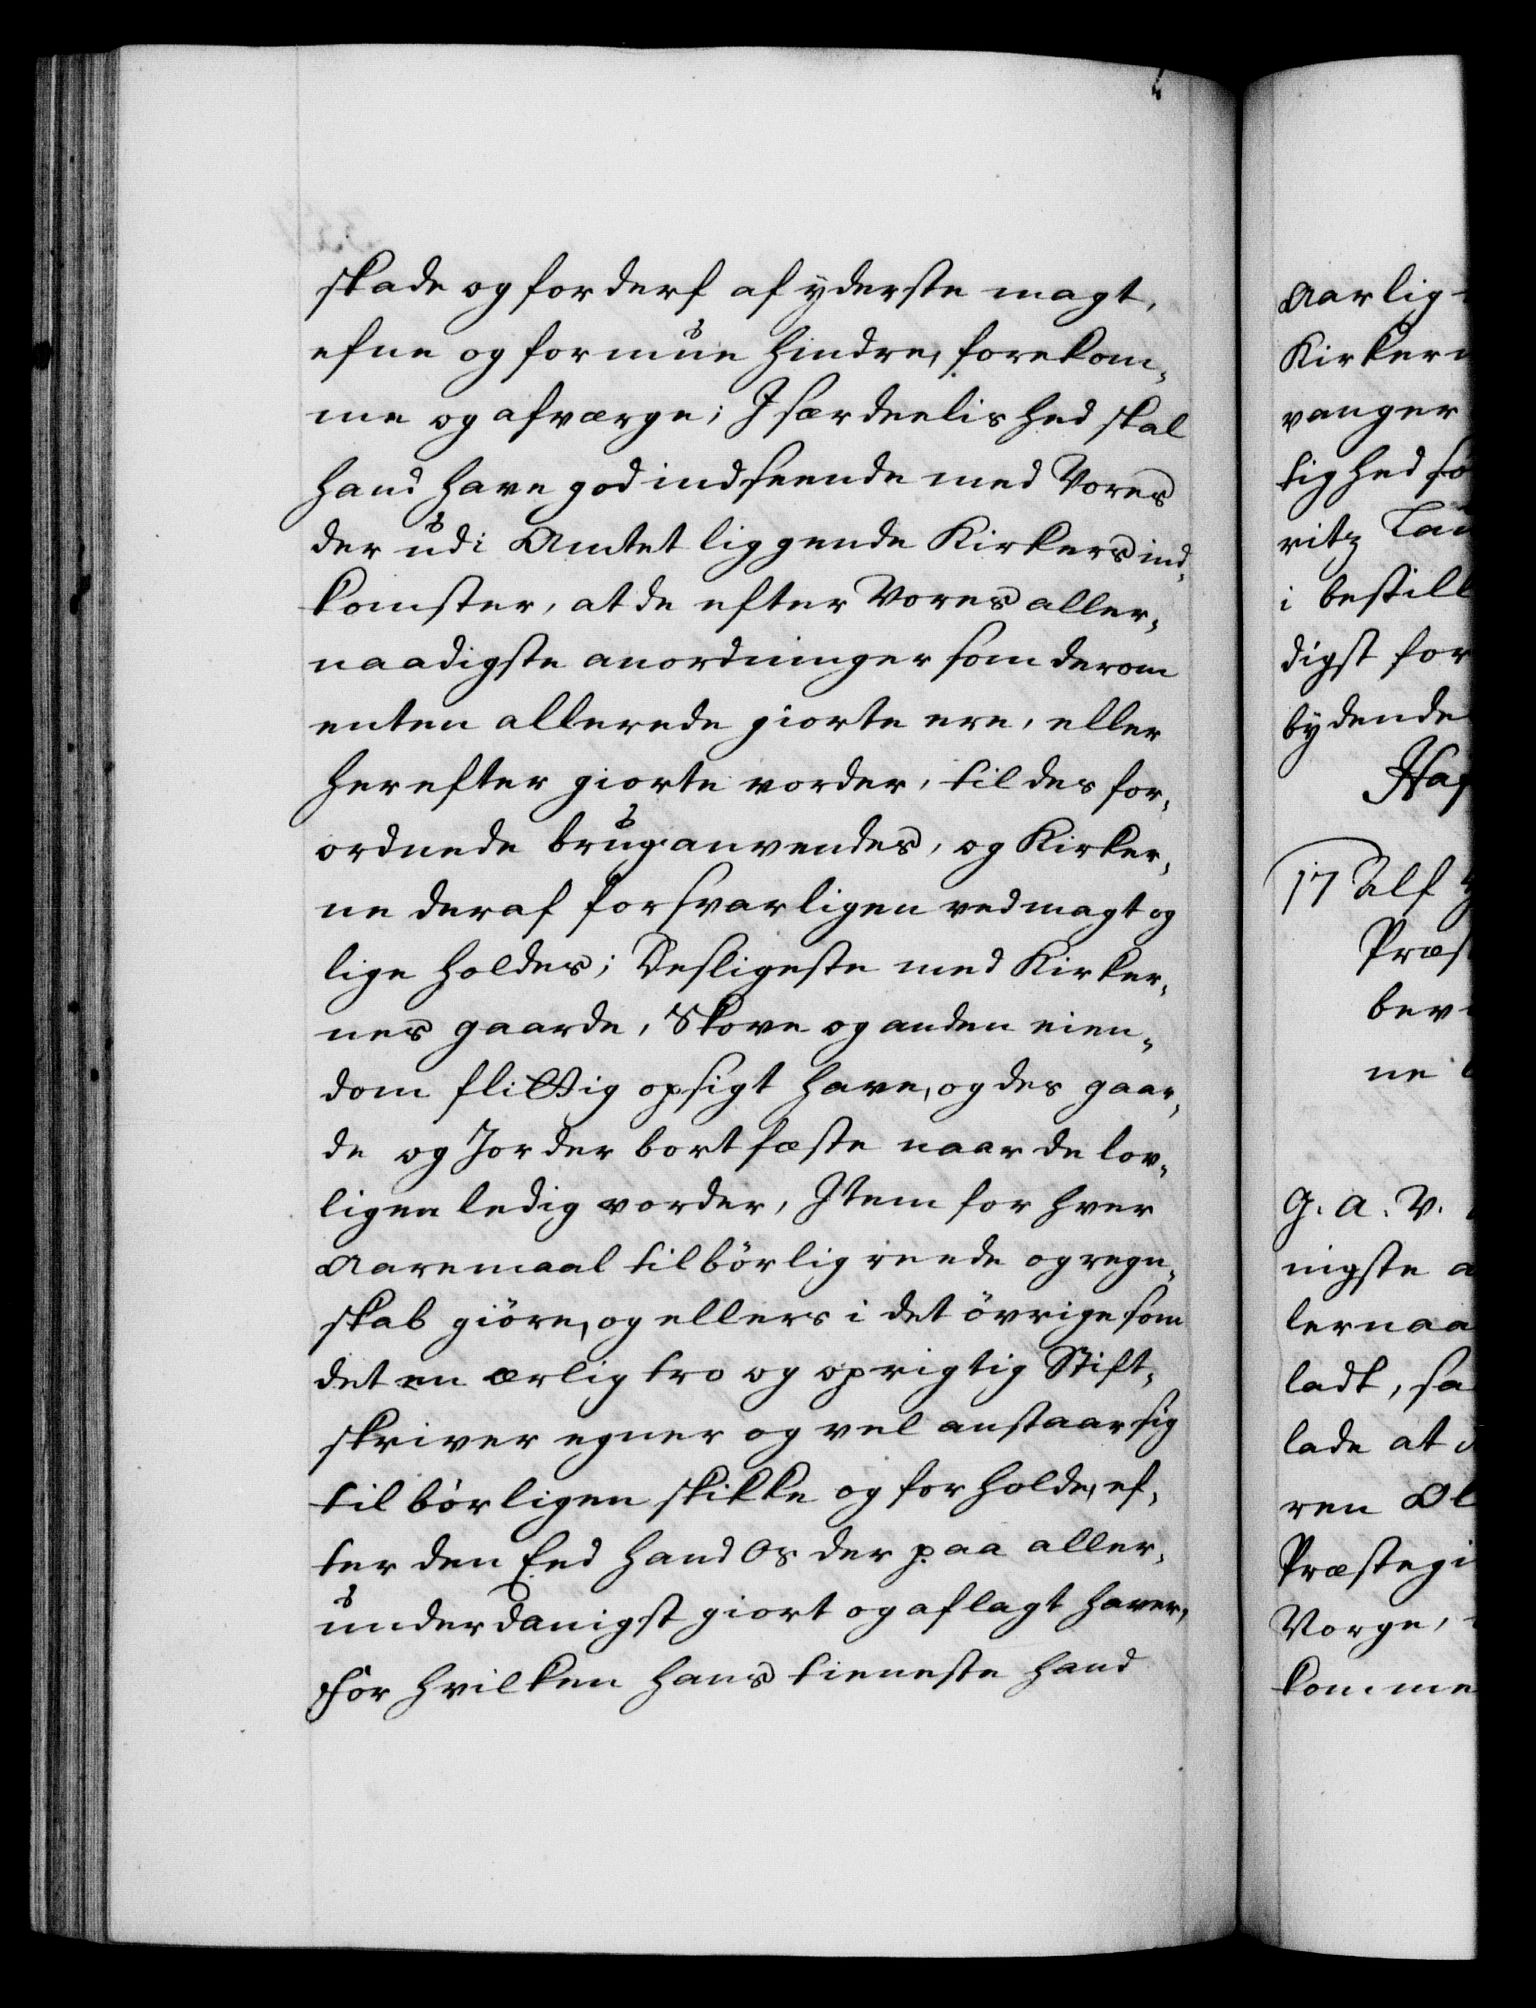 skade og forderf af yderste magt,
efne og formue hindre, forekom-
me og afværge; Isærdeelished skal
hand have god indseende med Vores
der udi Amtet liggende Kirkers ind-
komster, at de efter Vores aller-
naadigste anordninger som derom
enten allerede giorte ere, eller
herefter giorte vorder, til des for-
ordnede brug anvendes, og Kirker-
ne deraf forsvarligen ved magt og
lige holdes; Desligeste med Kirker-
nes gaarde, Skove og anden eien-
dom flittig opsigt have, og des gaar-
de og Jorder bortfæste naar de lov-
ligen ledig vorder, Item for hver
Aaremaal tilbørlig reede og regn-
skab giøre, og ellers i det øvrige som
det en ærlig tro og oprigtig Stift-
skriver egner og vel anstaar sig
tilbørligen skikke og forholde, ef-
ter den Eed hand Os der paa aller-
underdanigst giort og aflagt haver,
For hvilken hans tieneste hand
Aarlig
Kirkern
vanger
tighed
ritz
i bestill
digst for
bydende
17 Ulf
Præs
bev
ne
G. A. V.
nigste a
lernaa
ladt, sa
lade at
ren Ol
Præstegi
Norge,
komme